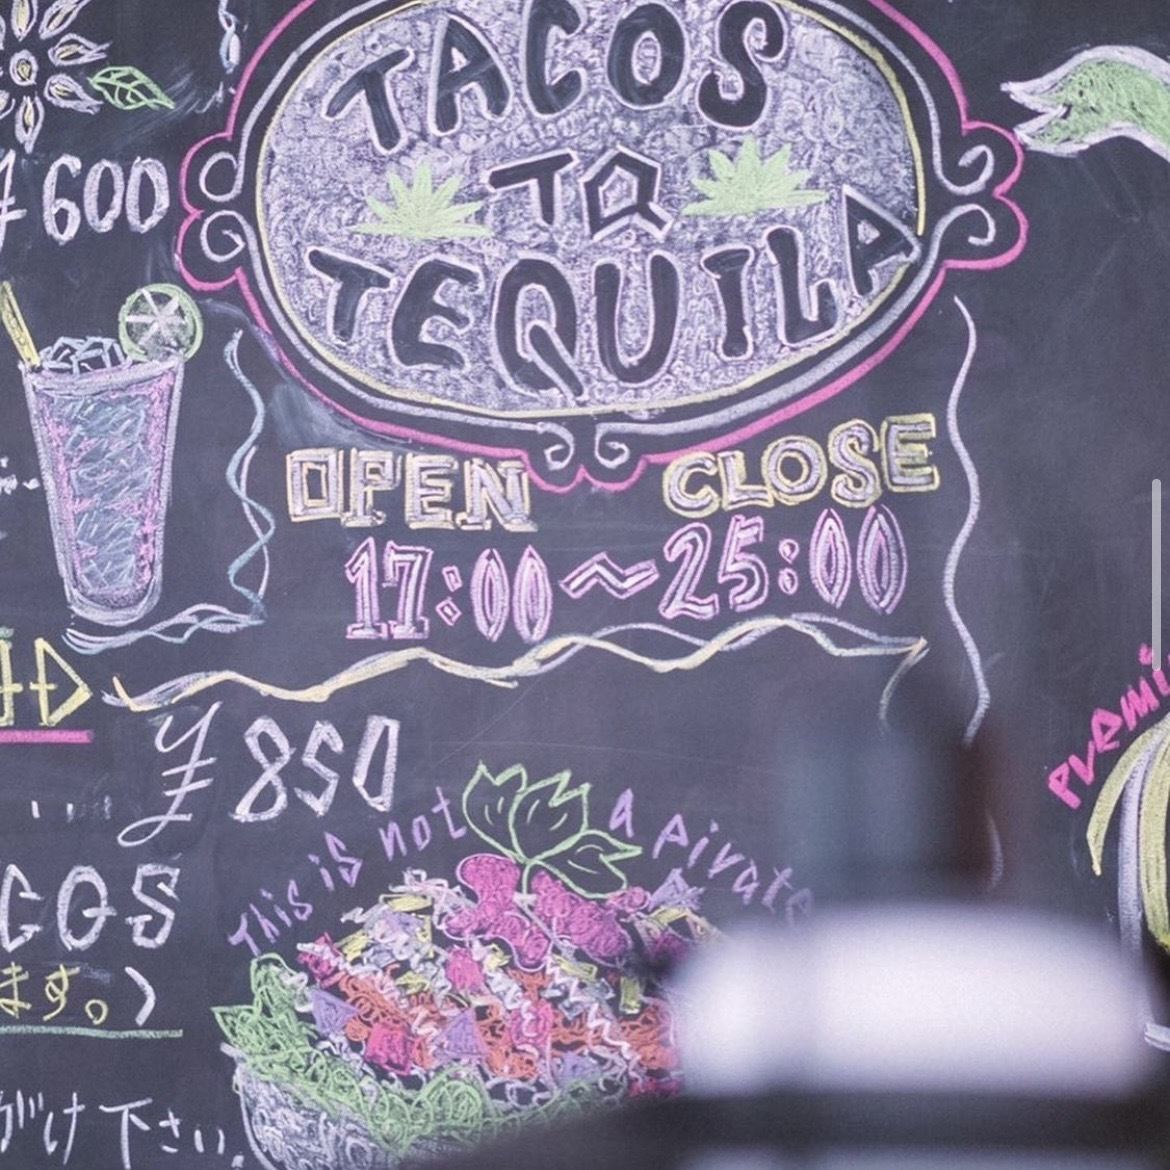 TACOS
TQ
TEQUILA
¥600
OPEN CLOSE
17:00~25:00
¥850
This is not a pivate
Premi
COS
ます。)
がけ下さい。